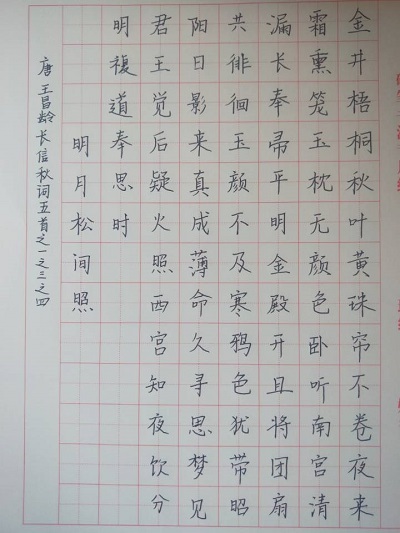 金井梧桐秋叶黄珠帘不卷夜来
霜熏笼玉枕无颜色卧听南宫清
漏长奉帚平明金殿开且将团扇
共徘徊玉颜不及寒鸦色犹带昭
阳日影来真成薄命久寻思梦见
君王觉后疑火照西宫知夜饮分
明複道奉思时
明月松间照
唐王昌龄长信秋词五首之一之三之四